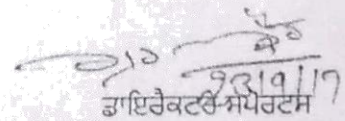 23/9/17
ਡਾਇਰੈਕਟਰ ਸਪੋਰਟਸ